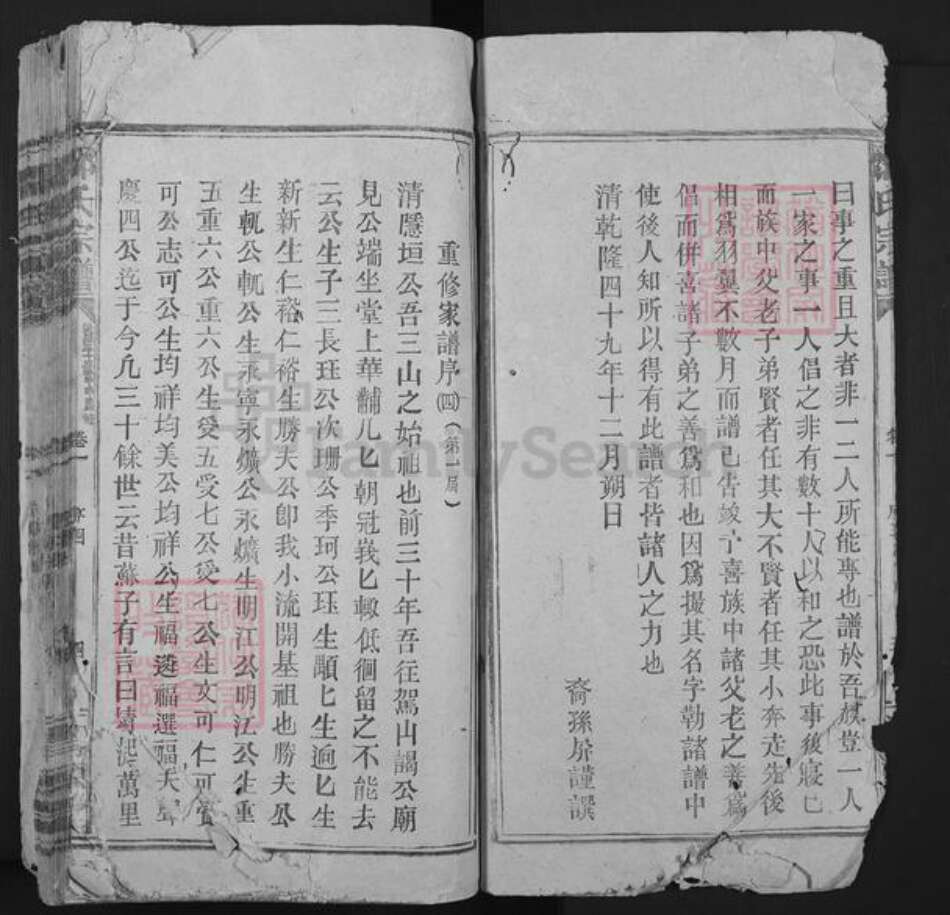 曰事之重且大者非一二人所能專也譜於吾族豈一人
一家之事一人倡之非有數十人以和之恐此事後寢已
而族中父老子弟賢者任其大不賢者任其小奔走先後
相爲羽翼不數月而譜已告竣予喜族中諸父老之善爲
倡而併喜諸子弟之善爲和也因爲撮其名字勒諸譜中
使後人知所以得有此譜者皆諸人之力也
清乾隆四十九年十二月朔日
裔孫 謹譔
重修家譜序(四)(第一屆)
清隱垣公吾三山之始祖也前三十年吾往駕山謁公廟
見公端坐堂上華黼几匕朝冠峩匕輙低徊留之不能去
云公生子三長玨公次珊公季珂公玨生顒匕生逈匕生
新新生仁裕仁裕生勝夫公卽我小流開基祖也勝夫公
生軏公軏公生永寧永爌公永爌生明江公明江公生重
五重六公重六公生受五受七公受七公生文可仁可
可公志可公生均祥均美公均祥公生福 福選福
慶四公迄于今凢三十餘世云昔蘇子有言曰 萬里
氏宗譜
卷一
序四
FamilySearch